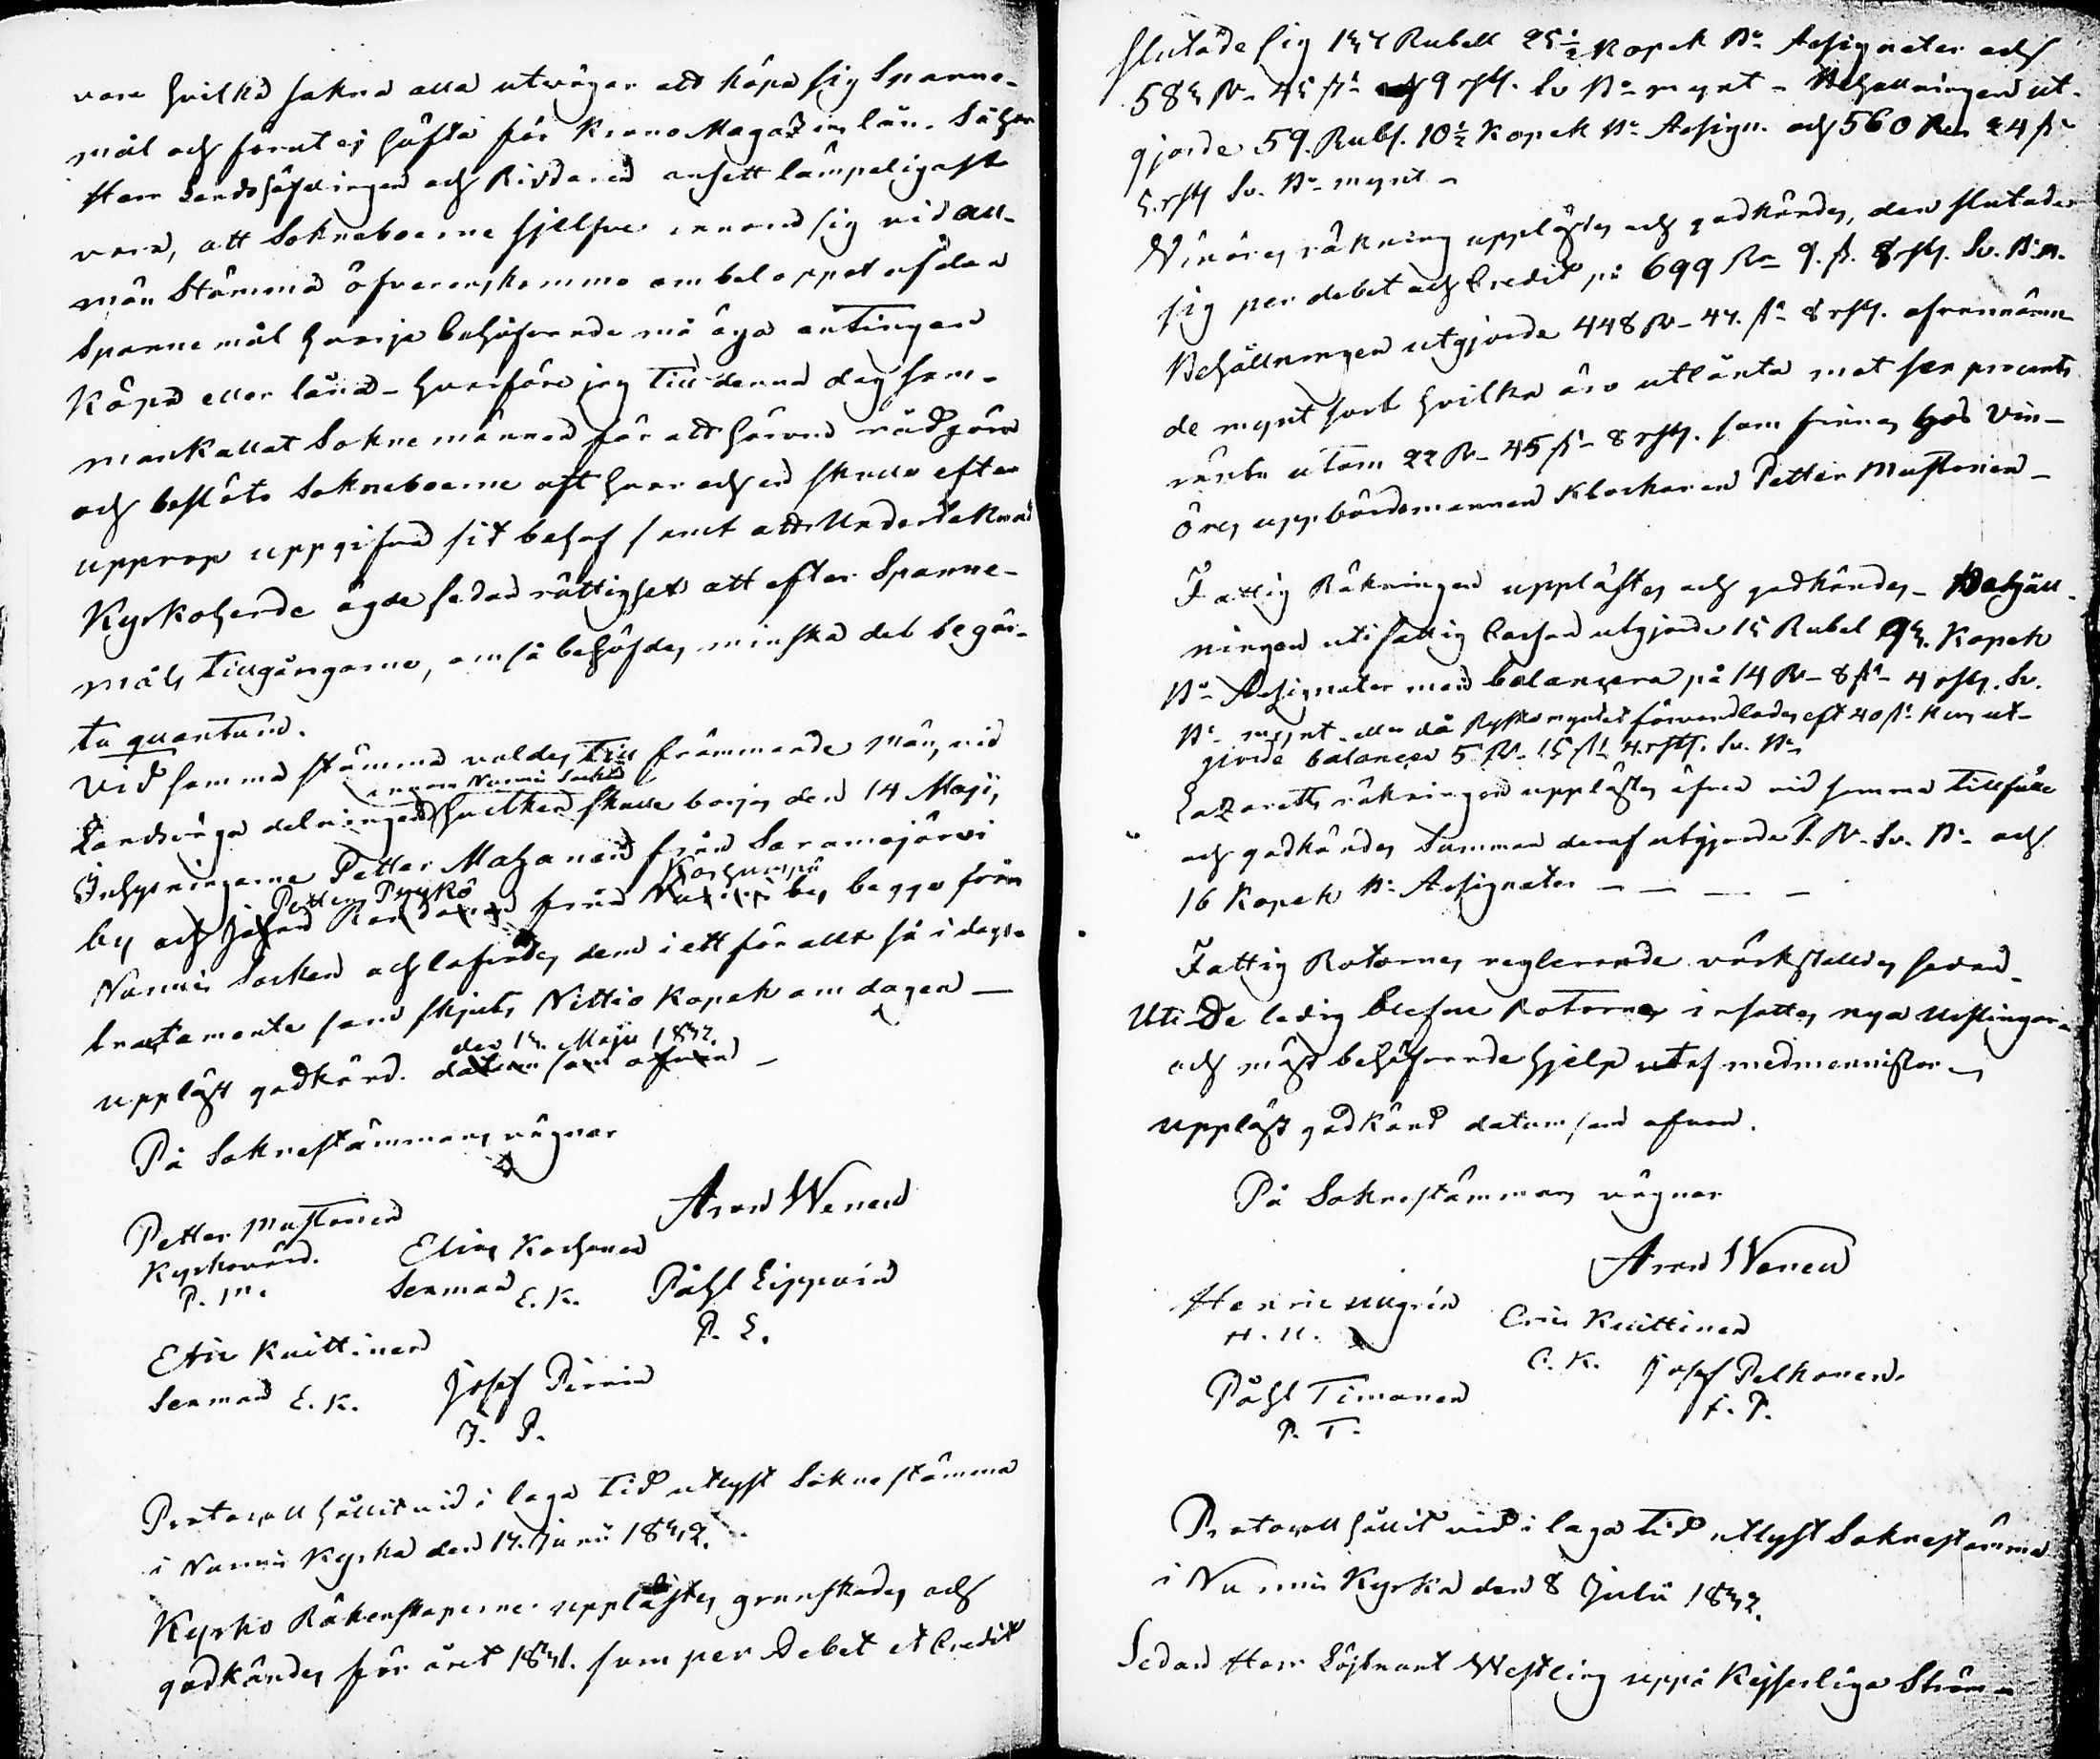 vore hvilka sakna alla utvägar att köpa sig Spanne-
mål och förut ej häfta för KronoMagazins lån. Så har
Herr Landshöfdingen och Riddaren ansett lämpeligast
vara, att Sokneboerne sjelfve innom sig vid all-
män Stämma öfverenskommo om beloppet af den
Spannemål hvarje behöfvande må äga antingen
köpa eller låna – hvarföre jag till denna dag sam-
mankallat Soknemännen för att härom rådgöra
och beslöto Sokneboerne att hvar och en skulle efter
upprop uppgifva sit behof samt att Underteknad
Kyrkoherde ägde sedan rättighet att efter Spanne-
måls tillgångarne, om så behöfdes, minska det begär-
ta quantum.
Vid samma stämma valdes till främmande män, vid
innom Nurmis Sokn
Landtväga delningen hvilken skulle börjas den 14 Maji,
Inhysningarne Petter Mahanen från Saramojärvi
Petter Pyykö Kochunpä
by och Johan från by begge från
Nurmis Socken och lofvades dem i ett för allt så i dags-
tractamente som skjuts Nittio Kopek om dagen —
den 14 Maji 1832.
uppläst godkänd. datum som ofvan –
På Soknestämmans vägnar
Aron Wenen
Petter Mustonen
Kyrkovärd.
P. M.
Elias Kochonen
Sexman E. K.
Påhl Lippoin
P. L.
Eric Kuittinen
Sexman E. K.
Josef Pirnin
J. P.
Protocoll hållit vid i laga tid utlyst Soknestämma
i Nurmis Kyrka den 17. Junii 1832.
Kyrko Räkenskaperne upplästes granskades och
godkändes för året 1831. som per Debet et Credit
slutade sig 137 Rubell 25½ Kopek Bo Assignater och
583 Rr 45 sk och 9 rst. Sv Bo mynt – Behållningen ut-
gjorde 59. Rubl. 10½ Kopek Bo Assign. och 560 Rr 24 sk
3. rst Sv. Bo mynt –
Vinörens räkning upplästes och godkändes, den slutades
sig per debet och Credit på 699 Rr 9. sk. 8 rst. Sv. B. M.
Behållningen utgjorde 448 Rr 47. sk 8 rst. ofvannämn-
de mynt sort hvilka äro utlånta mot sex procents
ränta utom 22 Rr 45 sk 8 rst. som finnes hos Vin-
örens uppbördsmannen Klockaren Petter Mustonen –
Fattig Räkningen upplästes och godkändes – Behåll-
ningen uti fattig Cassan utgjorde 15 Rubel 93. Kopek
Bo Assignater med balancera på 14 Rr 8 sk 4 rst. Sv.
Bo mynt – eller då Ryska myntet förvandlades efter 40 sk Ren ut-
gjorde balancen 5 Rr 15 sk 4 rst. Sv. Bo
Lazaretts räkningen upplästes äfven vid samma tillfälle
och godkändes Summan deraf utgjorde 1. Rr Sv. Bo och
16 Kopek Bo Assignater — — — —
Fattig Rotornes reglerande värkställdes sedan
Uti De ledig blefne Rotorne insattes nya Uslingar
och mäst behöfvande hjelp utaf medmenniskor –
uppläst godkänd datum som ofvan.
På Soknestämmans vägnar
Aron Wenen
Henric Ullgrén
H. U.
Eric Kuittinen
E. K.
Påhl Timonen
P. T.
Josef Pelkonen.
J. P.
Protocoll hållit vid i laga tid utlyst Soknestämma
i Nurmis Kyrka den 8 Julii 1832.
Sedan Herr Löjtnant Westling uppå Kejserliga Ström-